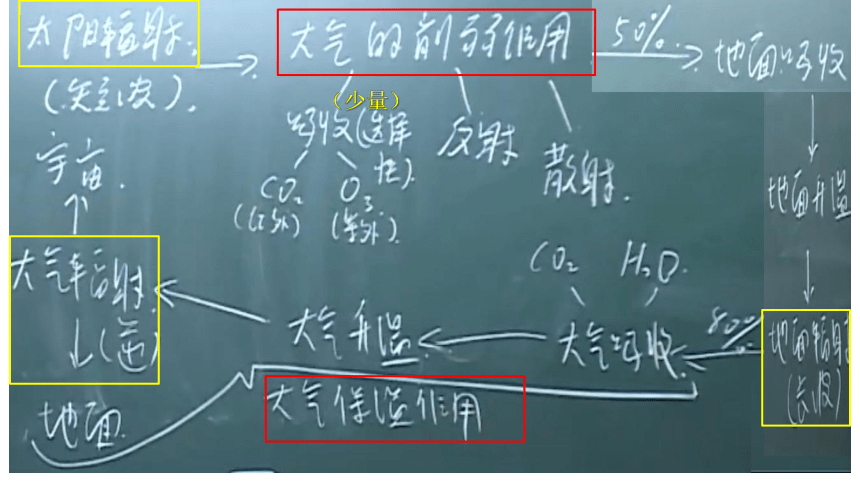 太阳辐射.
(短波).
大气的削弱作用
50%.
地面吸收
(少量)
吸收(选择性).
反射
散射.
CO₂
(红外)
O₃
(紫外).
宇宙.
地面升温
大气辐射.
(逆)
地面.
大气升温.
CO₂
H₂O.
大气吸收.
80%
地面辐射
(长波)
大气保温作用